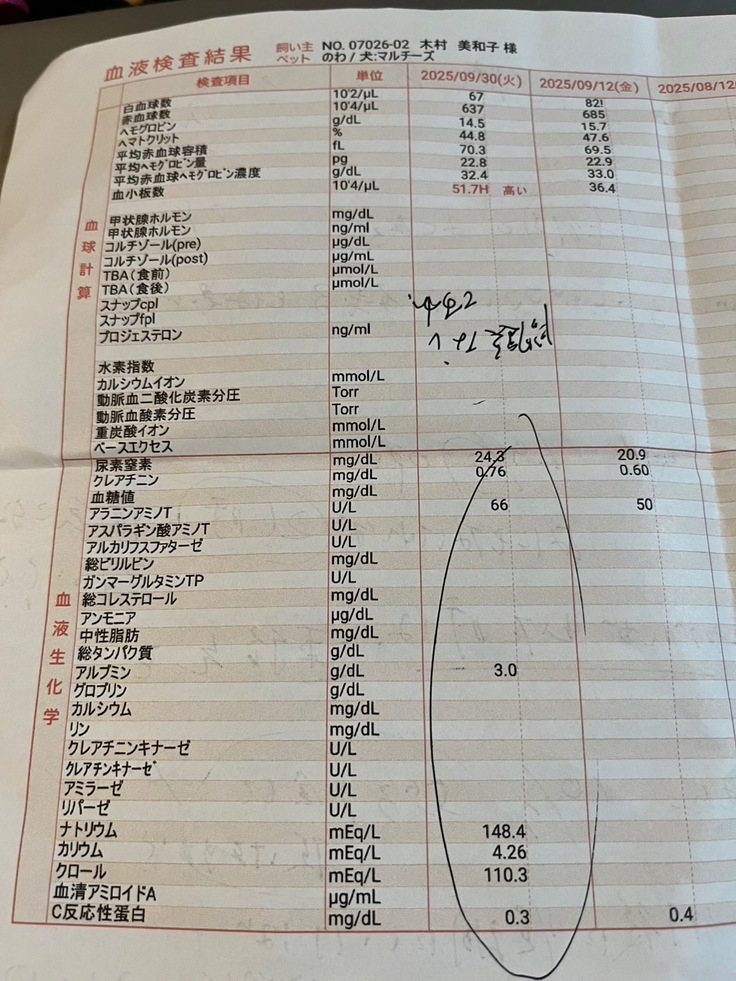 血液検査結果
飼い主 NO. 07026-02 木村 美和子 様
ペット のわ / 犬:マルチーズ
検査項目 単位 2025/09/30(火) 2025/09/12(金) 2025/08/12
白血球数 10²2/μL 67 82!
赤血球数 10²4/μL 637 685
ヘモグロビン g/dL 14.5 15.7
ヘマトクリット % 44.8 47.6
平均赤血球容積 fL 70.3 69.5
平均ヘモグロビン量 pg 22.8 22.9
平均赤血球ヘモグロビン濃度 g/dL 32.4 33.0
血小板数 10²4/μL 51.7H 高い 36.4
血球計算
甲状腺ホルモン mg/dL
甲状腺ホルモン ng/ml
コルチゾール(pre) μg/dL
コルチゾール(post) μg/mL
TBA(食前) μmol/L
TBA(食後) μmol/L
スナップcpl
スナップfpl
プロジェステロン ng/ml
水素指数
カルシウムイオン mmol/L
動脈血二酸化炭素分圧 Torr
動脈血酸素分圧 Torr
重炭酸イオン mmol/L
ベースエクセス mmol/L
尿素窒素 mg/dL 24.3 20.9
クレアチニン mg/dL 0.76 0.60
血糖値 mg/dL
アラニンアミノT U/L 66 50
アスパラギン酸アミノT U/L
アルカリフスファターゼ U/L
総ビリルビン mg/dL
ガンマーグルタミンTP U/L
総コレステロール mg/dL
アンモニア μg/dL
中性脂肪 mg/dL
総タンパク質 g/dL
アルブミン g/dL 3.0
グロブリン g/dL
カルシウム mg/dL
リン mg/dL
クレアチニンキナーゼ U/L
クレアチンキナーゼ U/L
アミラーゼ U/L
リパーゼ U/L
ナトリウム mEq/L 148.4
カリウム mEq/L 4.26
クロール mEq/L 110.3
血清アミロイドA μg/mL
C反応性蛋白 mg/dL 0.3 0.4
血液生化学